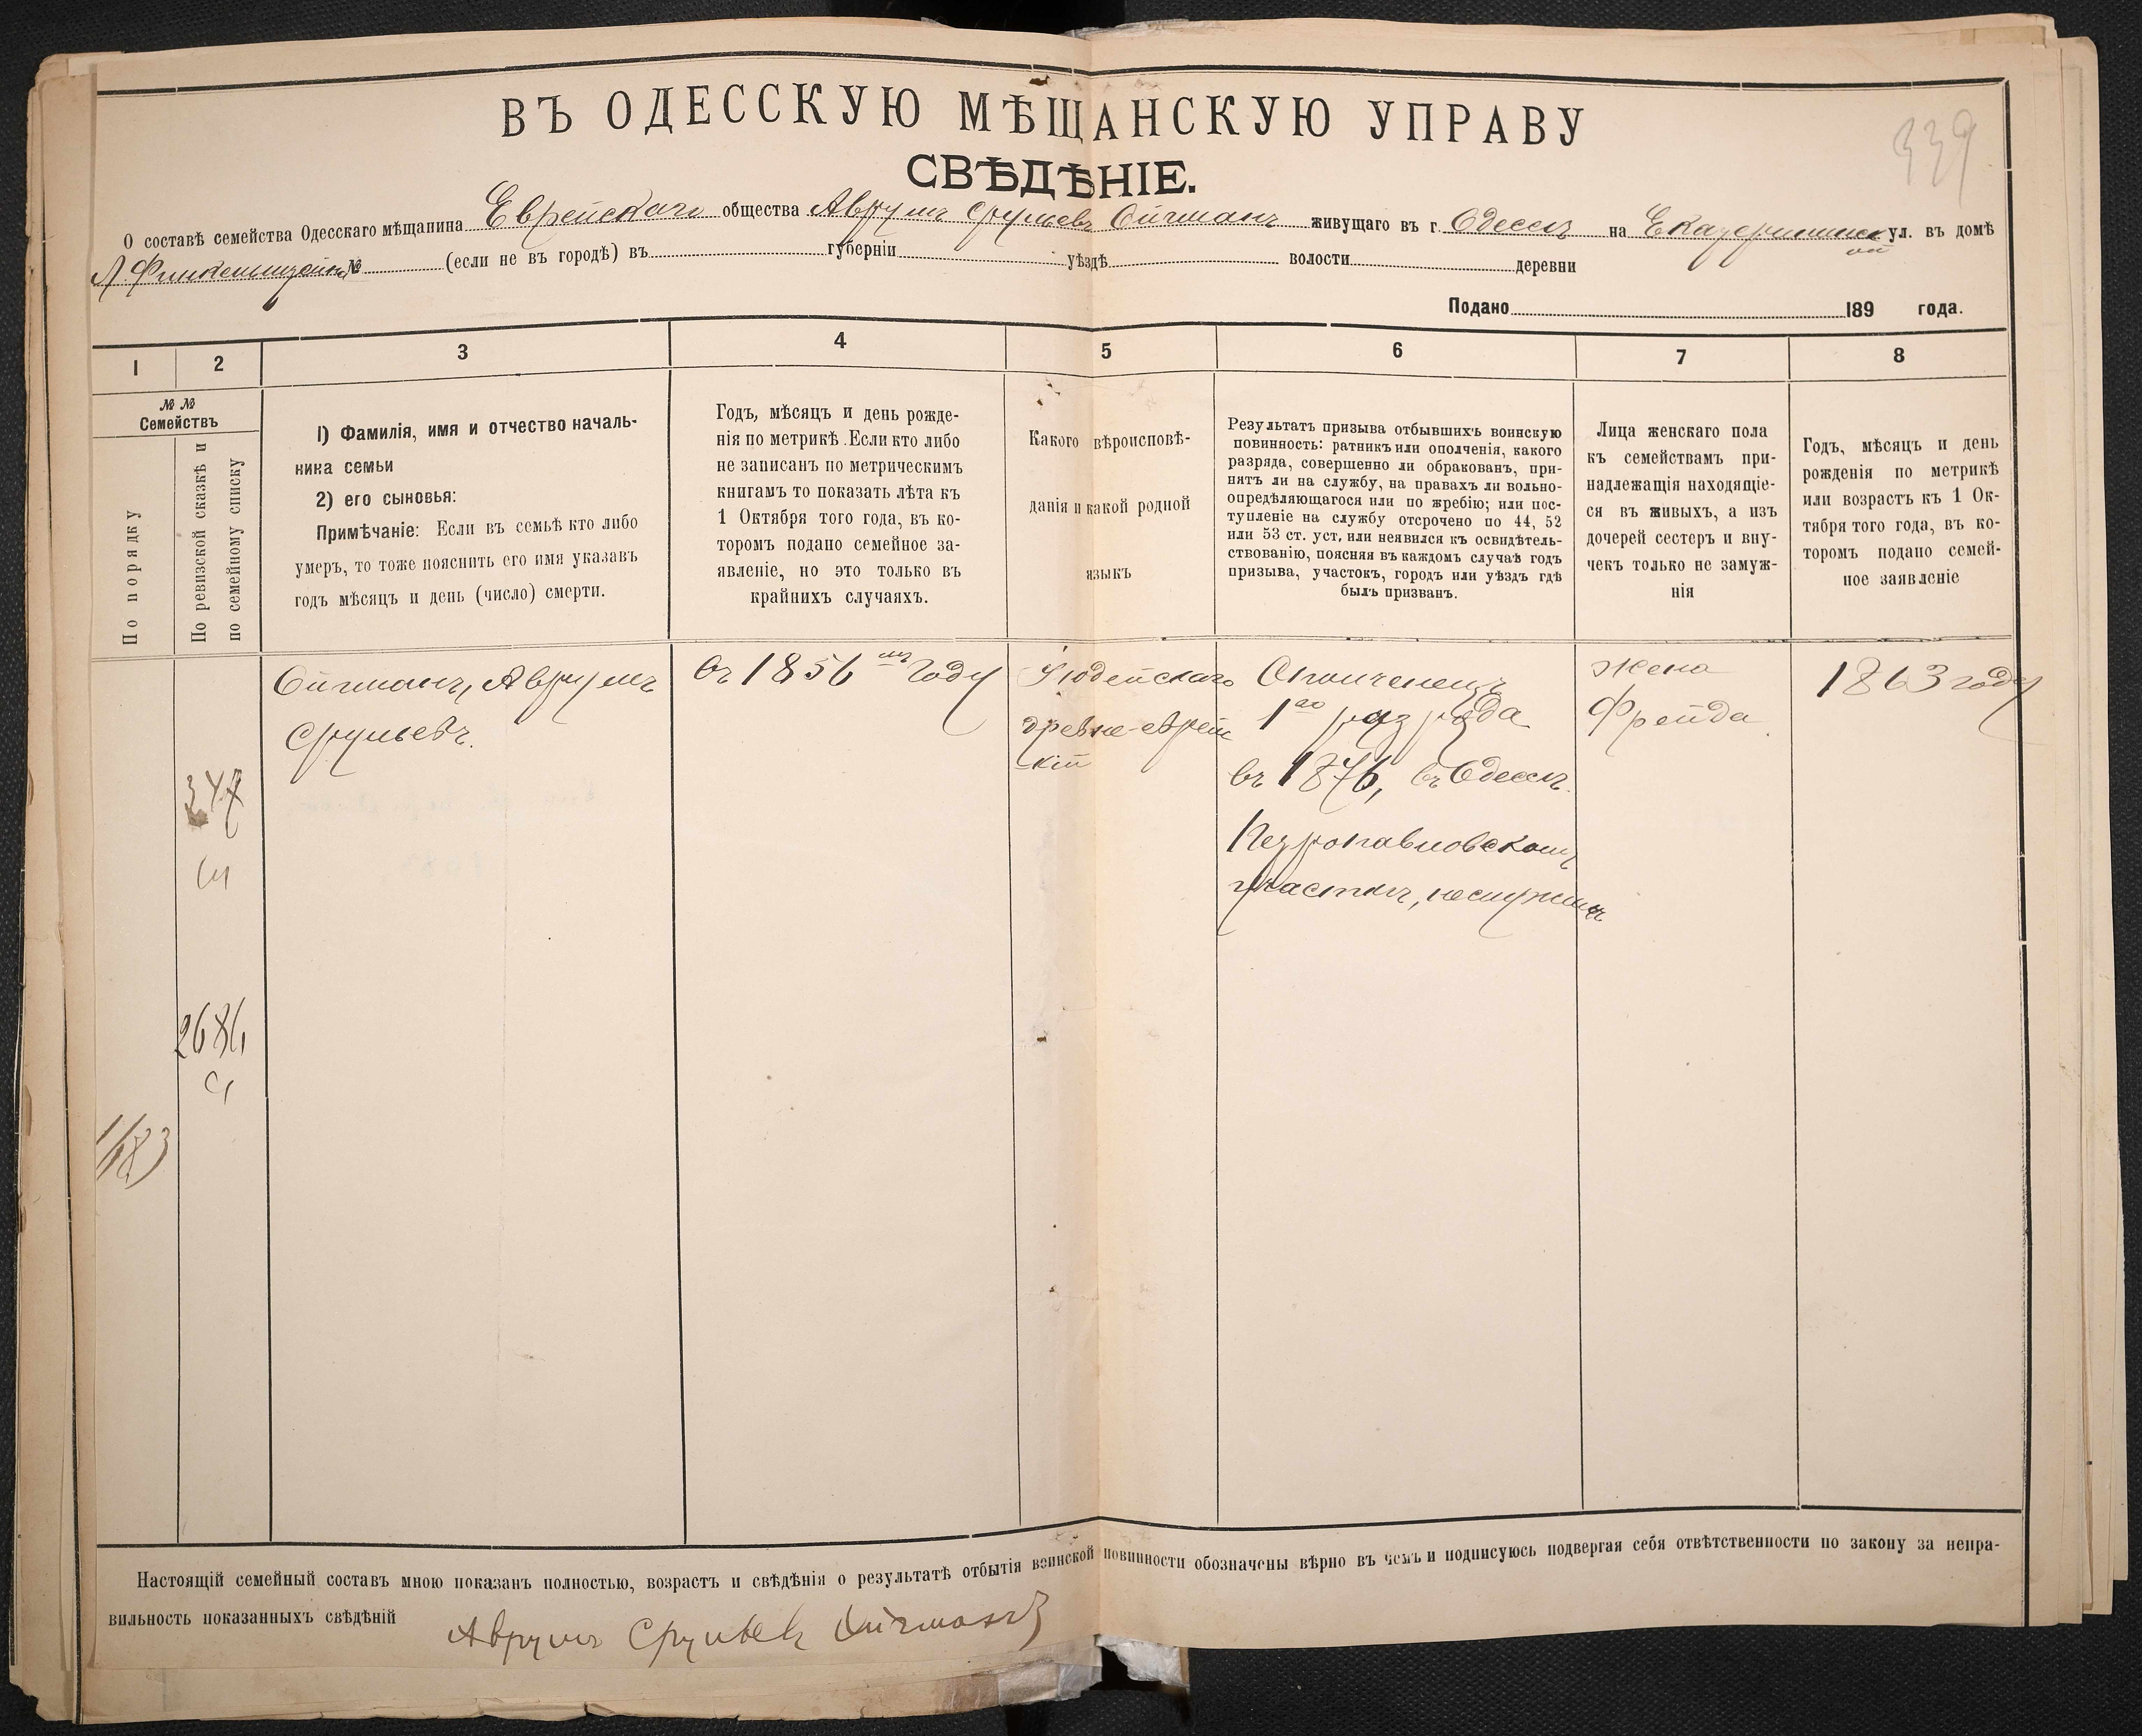 339
ВЪ ОДЕССКУЮ МѢЩАНСКУЮ УПРАВУ
СВѢДѢНІЕ.
О составѣ семейства Одесскаго мѣщанина Еврейскаго общества Аврумъ Срульевъ Ойгманъ живущаго въ г. Одессѣ на Екатерининской ул. въ домѣ
Л Финкельштейна № (если не въ городѣ) въ губерніи уѣздѣ волости деревни
Подано 189 года.
1 2 3 4 5 6 7 8
№ №
Семействъ
По порядку
По ревизской сказкѣ и
по семейному списку
1) Фамилія, имя и отчество началь-
ника семьи
2) его сыновья:
Примѣчаніе: Если въ семьѣ кто либо
умеръ, то тоже пояснить его имя указавъ
годъ мѣсяцъ и день (число) смерти.
Годъ, мѣсяцъ и день рожде-
нія по метрикѣ. Если кто либо
не записанъ по метрическимъ
книгамъ то показать лѣта къ
1 Октября того года, въ ко-
торомъ подано семейное за-
явленіе, но это только въ
крайнихъ случаяхъ.
Какого вѣроисповѣ-
данія и какой родной
языкъ
Результатъ призыва отбывшихъ воинскую
повинность: ратникъ или ополченія, какого
разряда, совершенно ли обракованъ, при-
нятъ ли на службу, на правахъ ли вольно-
опредѣляющагося или по жребію; или пос-
тупленіе на службу отсрочено по 44, 52
или 53 ст. уст, или неявился къ освидѣтель-
ствованію, поясняя въ каждомъ случаѣ годъ
призыва, участокъ, городъ или уѣздъ гдѣ
былъ призванъ.
Лица женскаго пола
къ семействамъ при-
надлежащія находящіе-
ся въ живыхъ, а изъ
дочерей сестеръ и вну-
чекъ только не замуж-
нія
Годъ, мѣсяцъ и день
рожденія по метрикѣ
или возрастъ къ 1 Ок-
тября того года, въ ко-
торомъ подано семей-
ное заявленіе
Ойгманъ, Аврумъ
Срульевъ.
въ 1856 мъ году
Іюдейскаго
древне-еврей
скій
Ополченецъ
1го разряда
въ 1876, въ Одессѣ.
Петропавловскомъ
участкѣ, неслужилъ
Жена
Фрейда
1863 году
2686
Настоящій семейный составъ мною показанъ полностью, возрастъ и свѣдѣнія о результатѣ отбытія воинской повинности обозначены вѣрно въ чемъ и подписуюсь подвергая себя отвѣтственности по закону за непра-
вильность показанныхъ свѣдѣній
Аврумъ Срульевъ Ойгманъ